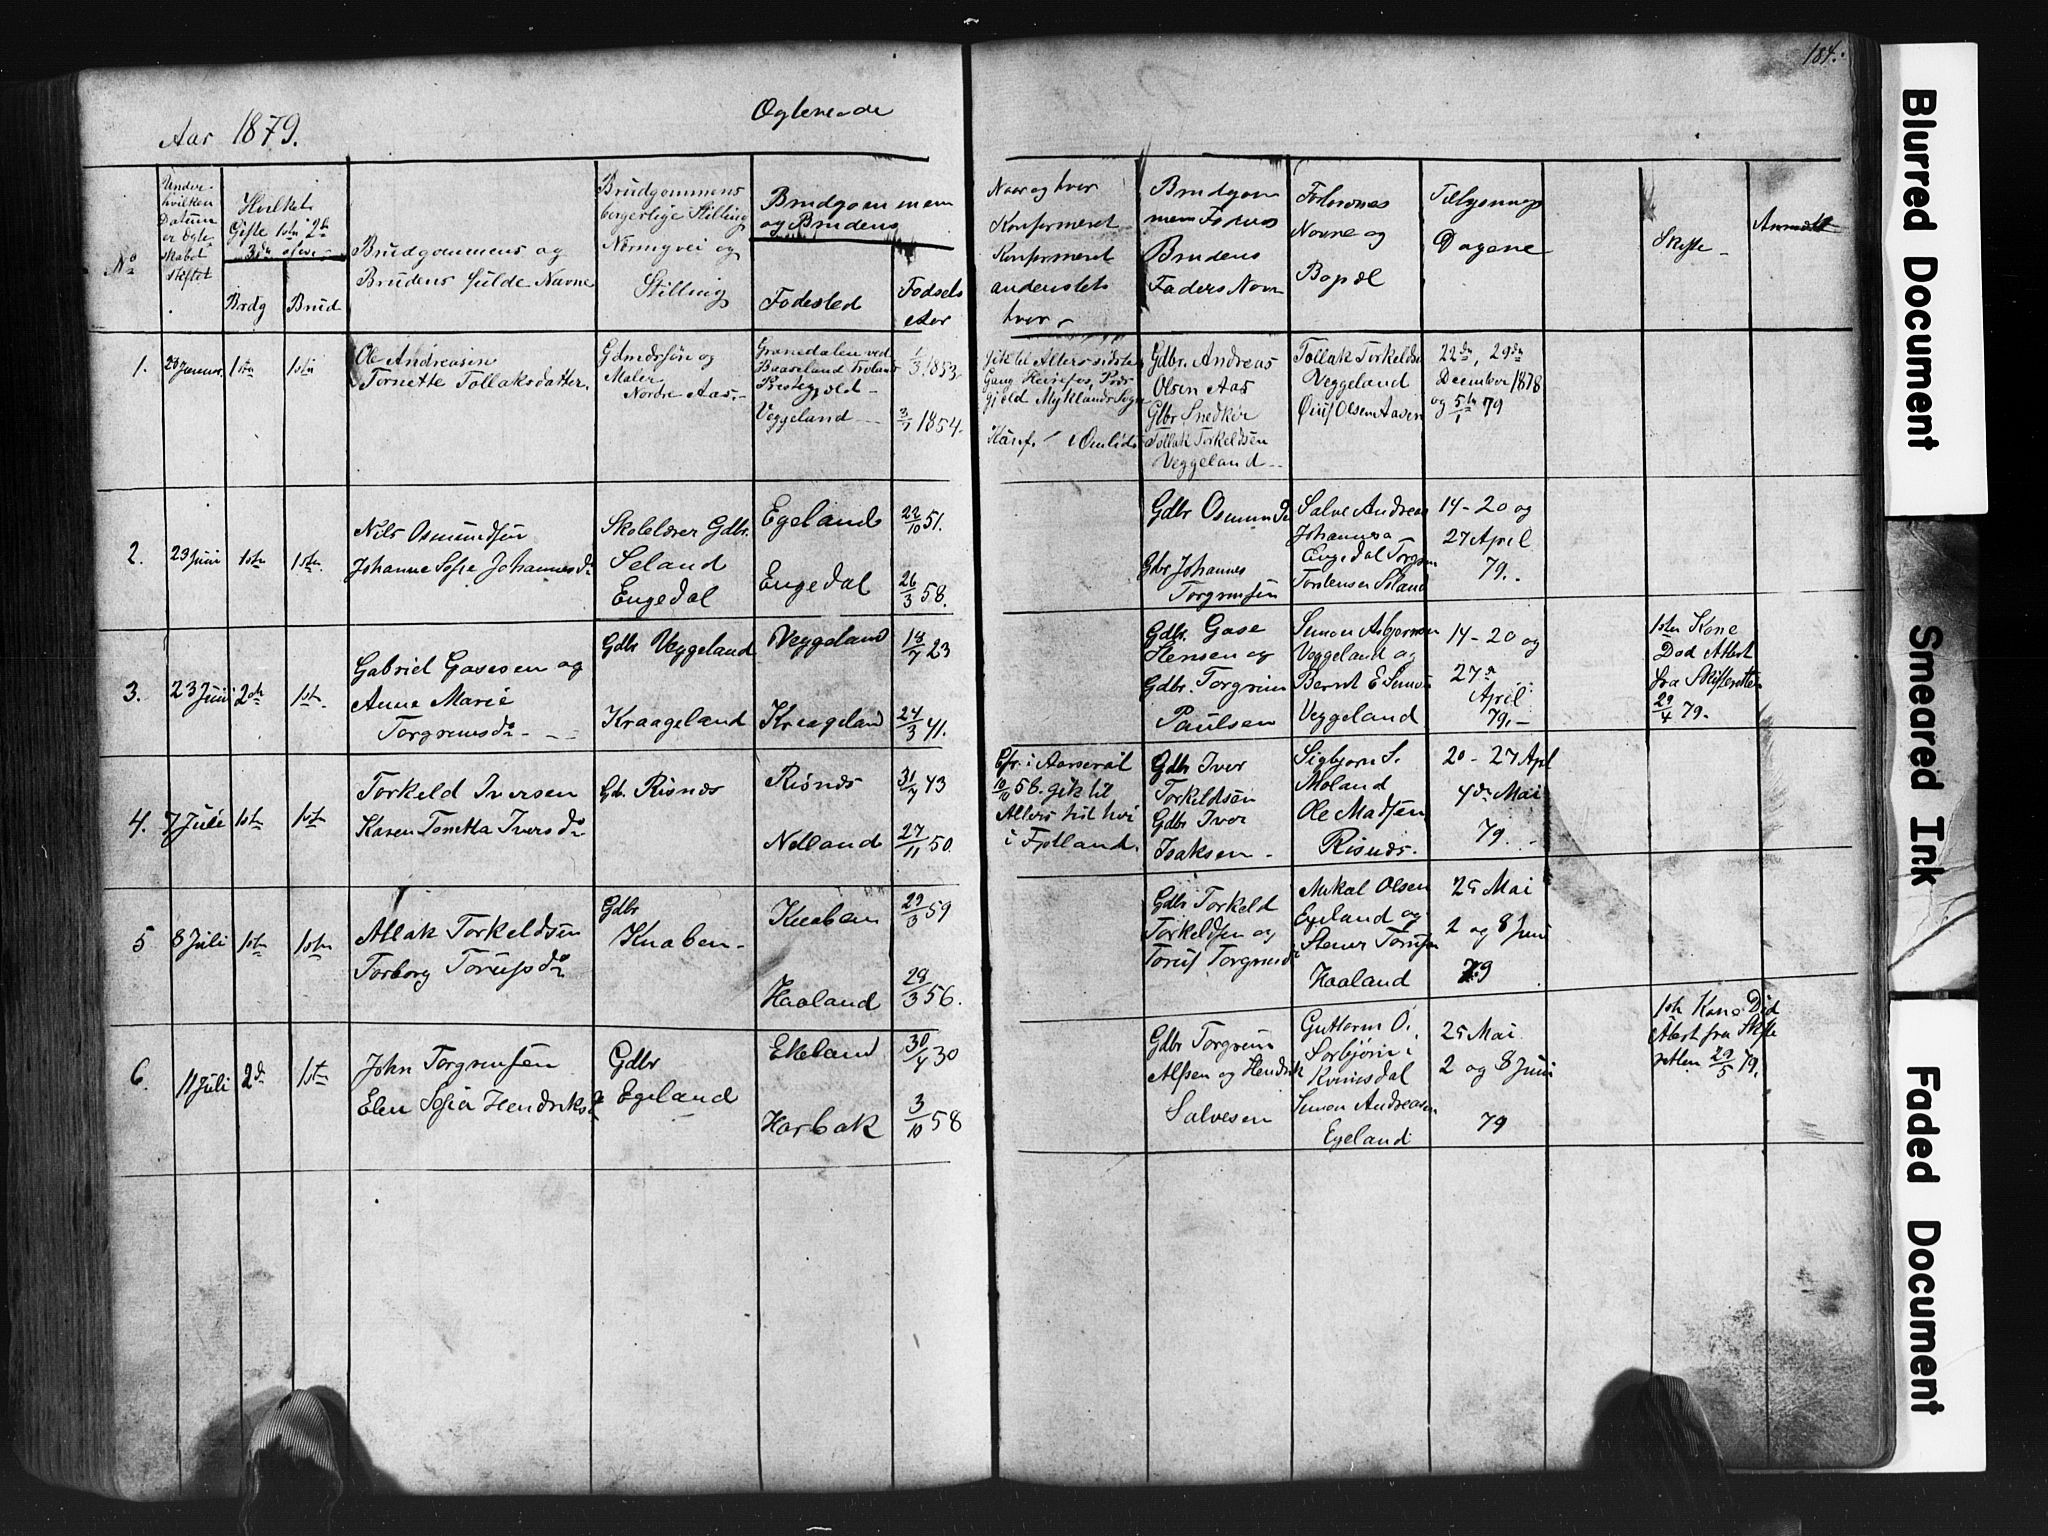 184.
Aar 1879.
Egteviede
No
Under
hvilken
Datum
er Egte
skabet
stiftet
Hvilket
Gifte 1ste 2de
3die osv.
Brdg
Brud
Brudgommens og
Brudens fulde Navne
Brudgommens
borgerlige Stilling
Næringvei og
Stilling
Brudgommens
og Brudens
Fødested
Fødsels
Aar
Naar og hvor
Konfirmeret
Konfirmeret
andensteds
hvor
Brudgom
mens Faders
Brudens
Faders Navn
Forlovernes
Navne og
Bopæl
Tillysnings
Dagene
Skifte
Anmælt
1.
1ste
1ste
Ole Andreasen
Tornette Tollaksdatter.
Gdmdsøn og
Maler
Nordre Aas.
Præstegjeld
Veggeland
1/3 1853
3/1 1854.
Gdbr. Andreas
Olsen Aas
Gbr Snedker
Tollak Torkeldsen
Veggeland
Tollak Torkeldsen
Veggeland
Olsen Aasen
22de, 29de
December 1878
og 5te/1 79
2.
23 Juni
1ste
1ste
Nils Osmundsen
Johanne Sofie Johannesdr
Skolelærer Gdbr.
Seland
Engedal
Egeland
Engedal
22/10 51.
26/3 58.
Gdbr Osmund
Gdbr Johannes
Torgrimsen
Salve Andreas
Johannes
Engedal Torgrim
Torstensen Seland
14 - 20 og
27 April
79.
3.
23 Juni
2den
1ste
Gabriel Gosesen og
Anne Marie
Torgrimsdr
Gdbr Veggeland
Kraageland
Veggeland
Kraageland
18/7 23
24/3 41.
Gdbr. Gose
Stensen og
Gdbr. Torgrim
Paulsen
Simon Asbjørnsen
Veggeland og
Bernt E Simons
Veggeland
14 - 20 og
27de
April
79.
1ste Kone
Død Attest
fra Skifteretten
29/4 79.
4.
7 Juli
1ste
1ste
Torkeld Iversen
Karen Tomtta Iversdr
Gb. Risnæs
Risnæs
Netland
31/7 43
27/11 50.
Cfr. i Aaseral
10/10 56. gik til
Alters sidst her
i Fjotland.
Gdbr Iver
Torkeldsen
Gdbr Iver
Isaksen
Sigbjørn S.
Moland
Ole Madsen
Risnæs.
20 - 27 Apl
4de Mai
79.
5
8 Juli
1ste
1ste
Atlak Torkeldsen
Torborg Torjusdr
Gdbr
Knaben
Knaben
Haaland
29/3 59
29/3 56.
Gdbr Torkeld
Torkeldsen og
Torjus Torgrimsen
Mikal Olsen
Egeland og
Stener Torjusen
Haaland
25 Mai
2 og 8 Juni
79
6.
11 Juli
2de
1ste
John Torgrimsen
Elen Sofia Hendriksdr
Gdbr
Egeland
Ekeland
Harbak
30/4 30
3/10 58
Gdbr Torgrim
Alfsen og Hendrik
Salvesen
Guttorm O.
Sorbjørn i
Kvinesdal
Simon Andreasen
Egeland
25 Mai
2 og 8 Juni
79
1ste Kone Død
Attest fra Skifte
retten 29/5 79.
Blurred Document
Smeared Ink
Faded Document